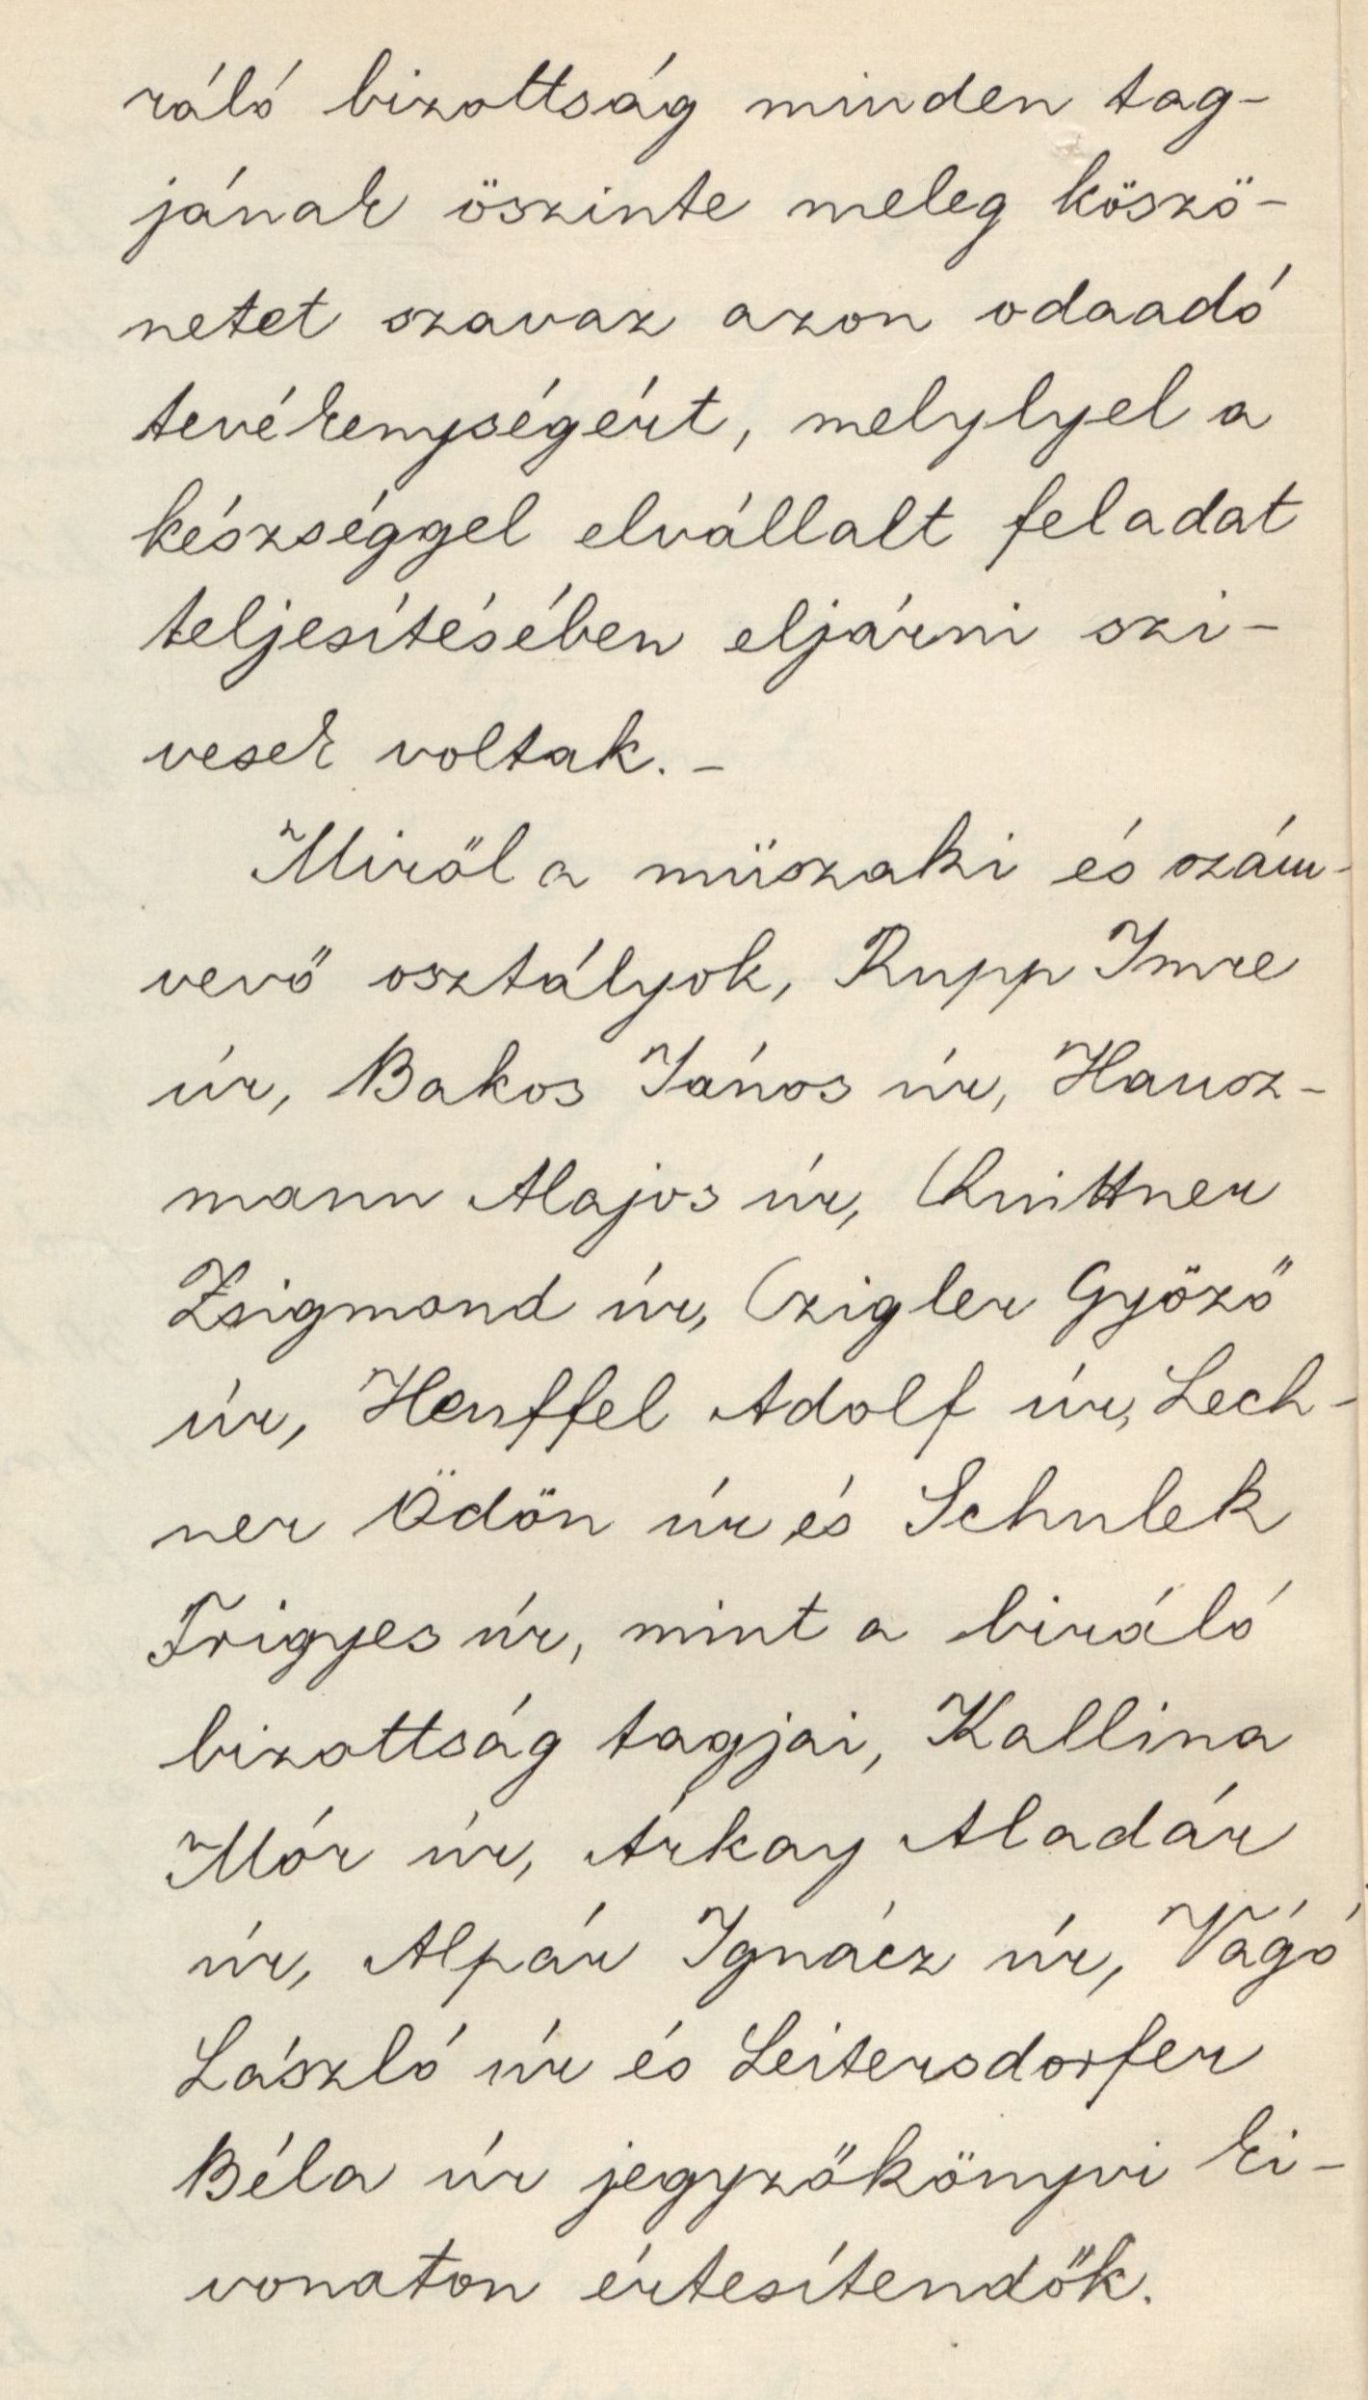 ráló bizottság minden tag-
jának öszinte meleg köszö-
netet szavaz azon odaadó
tevékenységért, melylyel a
készséggel elvállalt feladat
teljesítésében eljárni szi-
vesek voltak. -
Miröl a müszaki és szám-
vevő osztályok, Rupp Imre
úr, Bakos János úr, Hausz-
mann Alajos úr, Quittner
Zsigmond úr, Czigler Győző
úr, Henffel Adolf úr, Lech-
ner Ödön úr és Schulek
Frigyes úr, mint a biráló
bizottság tagjai, Kallina
Mór úr, Árkay Aladár
úr, Alpár Ignácz úr, Vágó
László úr és Leitersdorfer
Béla úr jegyzőkönyvi ki-
vonaton értesítendők.